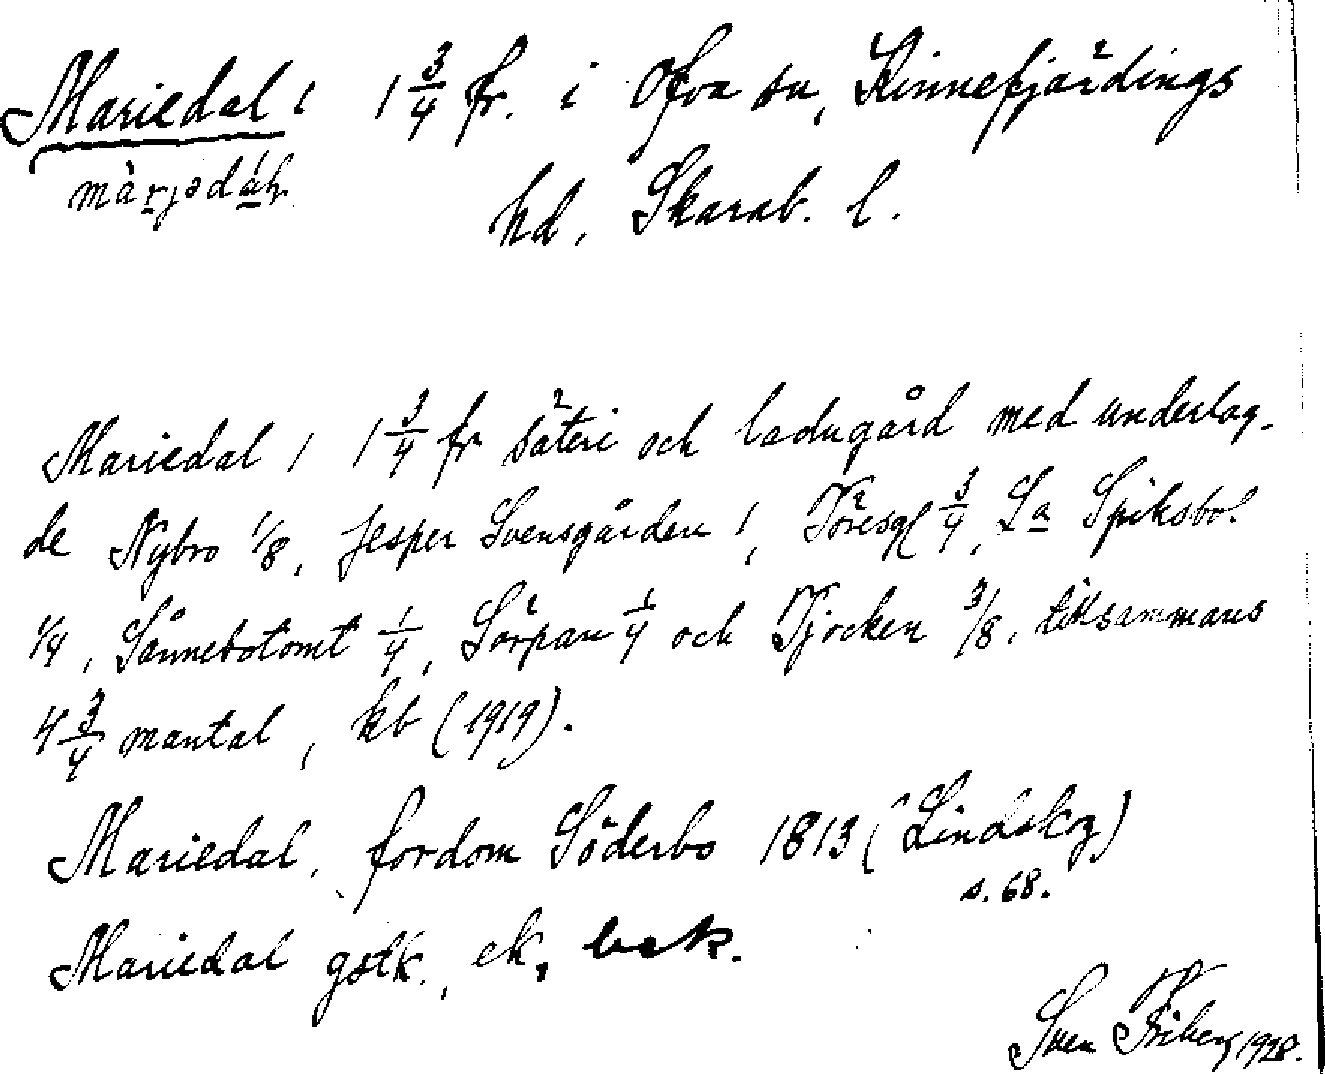 Mariedal 1 1 3/4 fr. i Ofva sn, Kinnefjärdings
hd, Skarab. l.
Mariedal 1 1 3/4 fr säteri och ladugård med underlag-
de Nybro 1/8, Jesper Svensgården 1, Töresg 3/4, La Spiksbol
1/4, Sännebotomt 1/4, Sörpan 1/4 och Tjocken 3/8, tillsammans
4 3/4 mantal, kb (1919).
Mariedal, fordom Söderbo 1813 (Lindskog)
s. 68.
Mariedal gstk., ek, bek.
Sven Friberg 1928.